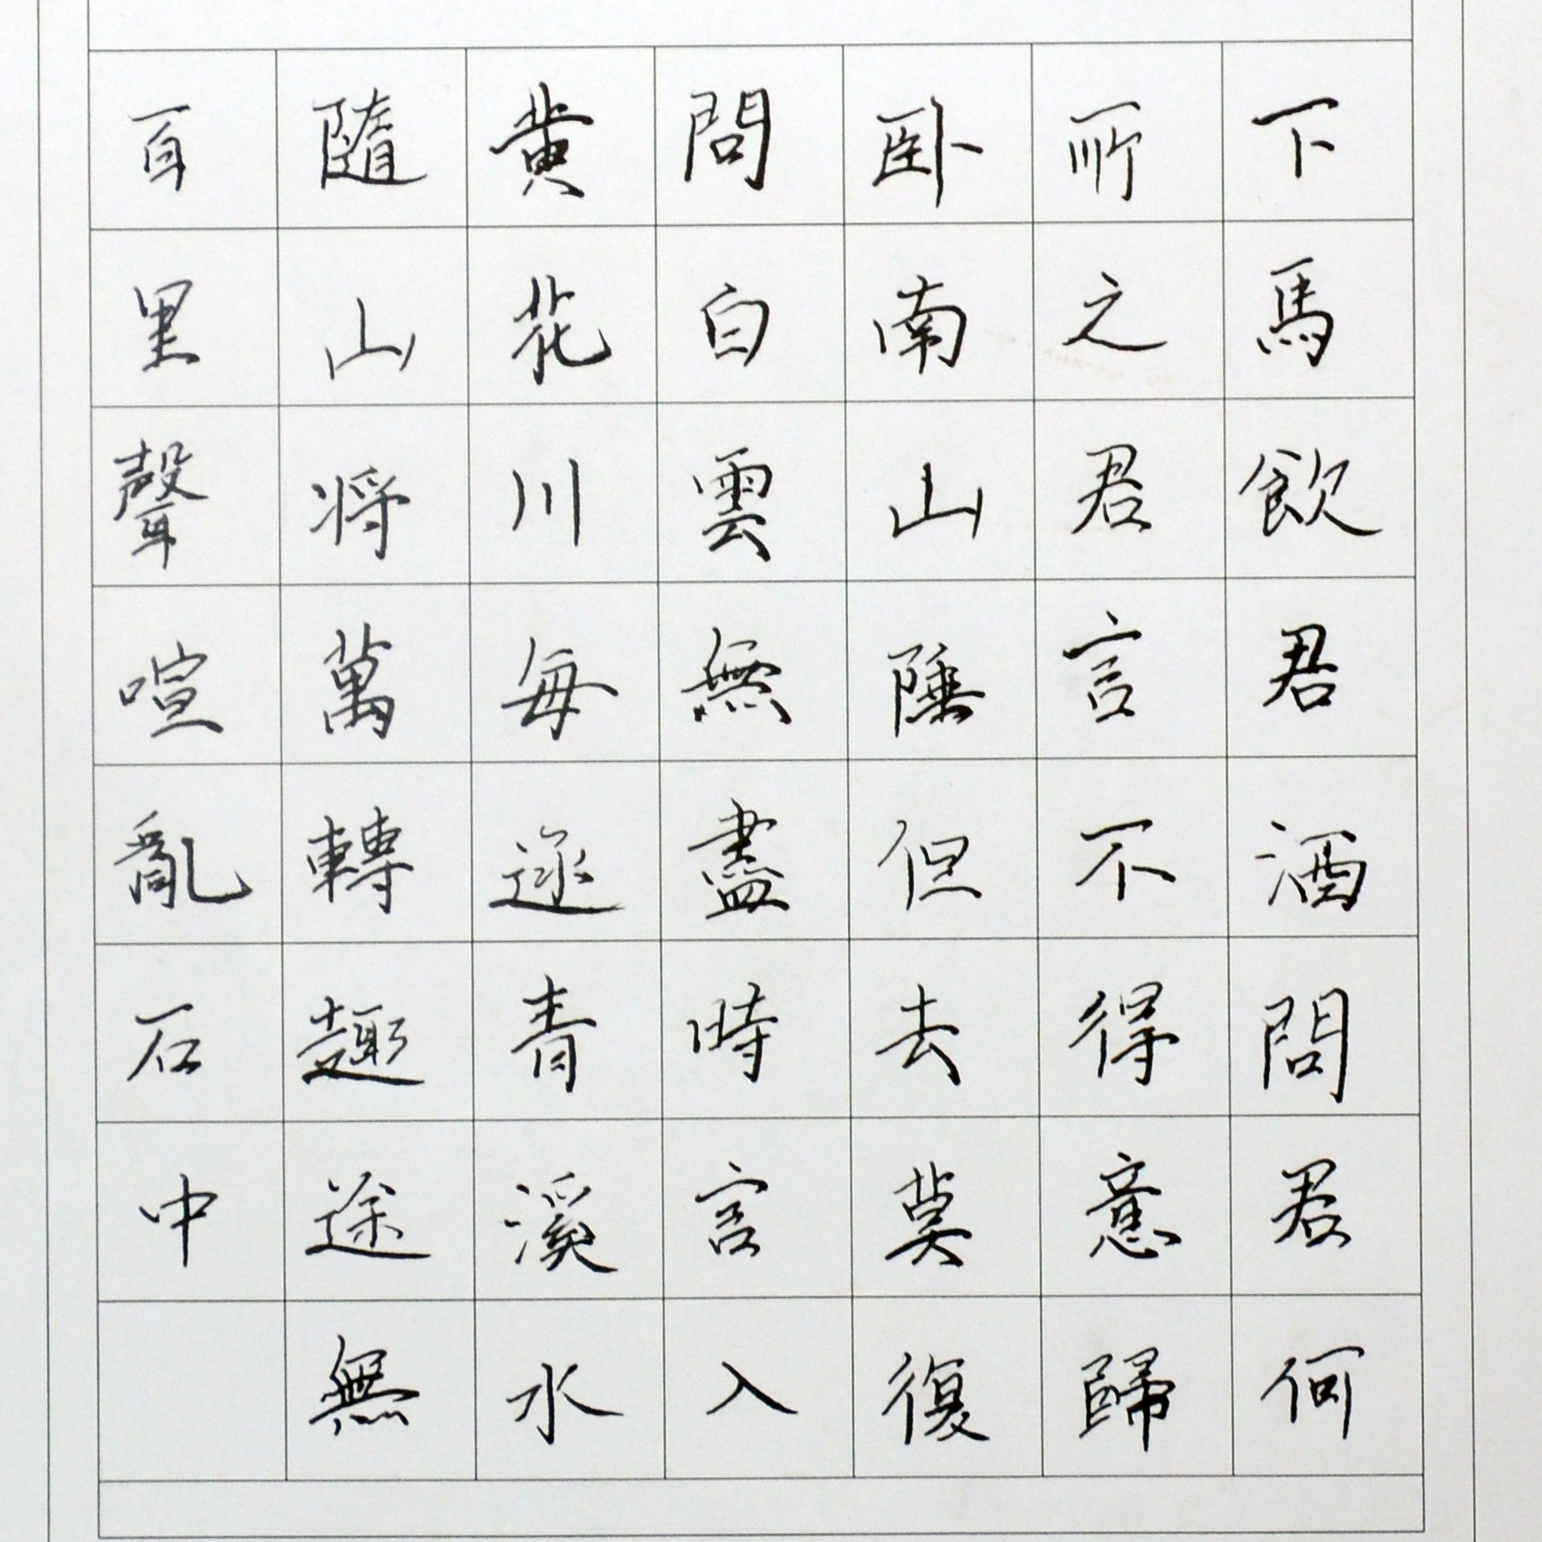 下馬飲君酒問君何
所之君言不得意歸
卧南山陲但去莫復
問白雲無盡時言入
黄花川每逐青溪水
隨山将萬轉趣途無
百里聲喧亂石中